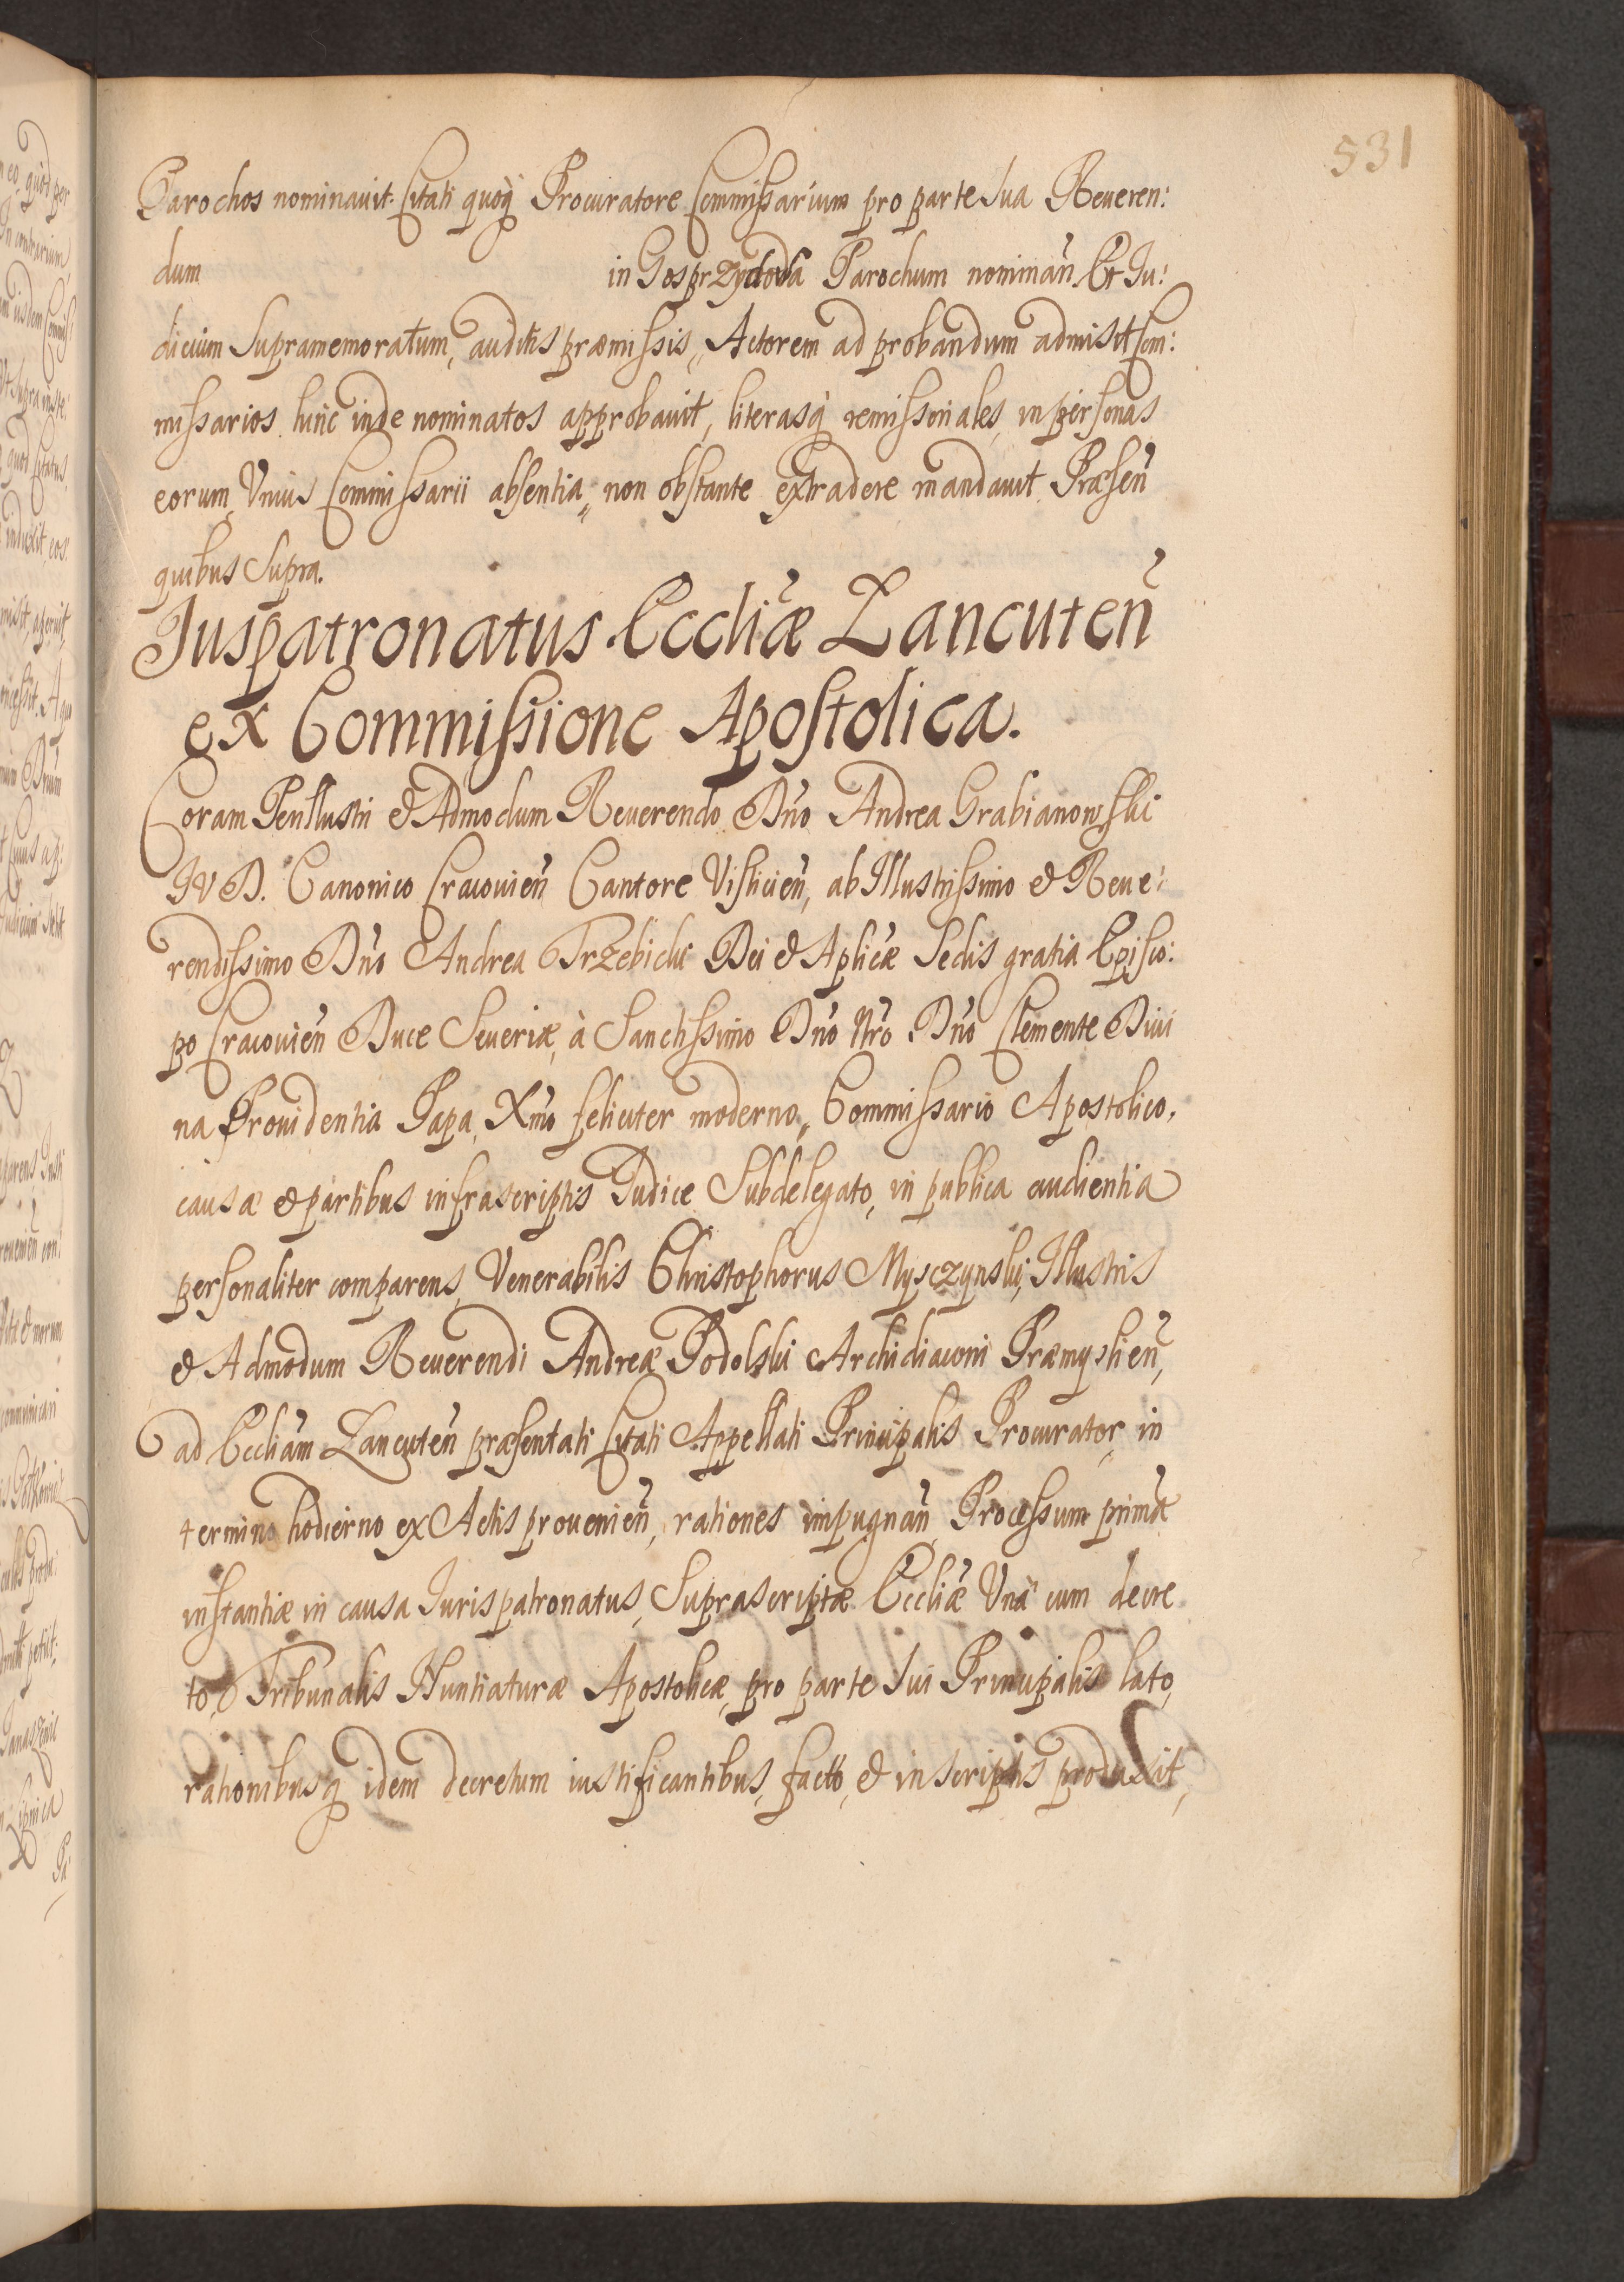 531
Parochos nominavit. Citati quoq̃ Procuratore Commissarium pro parte sua Reveren:
dum in Gosprzydova Parochum nominan̄. Et Ju:
dicium supramemoratum, auditis præmissis, Actorem ad probandum admisit Com:
missarios hinc inde nominatos approbavit, literasq̃ remissoriales, in personas
eorum, Unius Commissarii absentia, non obstante extradere mandavit. Præsen̄
quibus supra.
Juspatronatus Eccliæ Lancuten̄
ex Commissione Apostolica.
Coram Perillustri & Admodum Reverendo Dño Andrea Grabianowski
JVD. Canonico Cracovien̄ Cantore Vislicien̄, ab Illustrissimo & Reve:
rendissimo Dño Andrea Trzebicki Dei & Aplicæ Sedis gratia Episco:
po Cracovien̄ Duce Severiæ, à Sanctissimo Dño Nrõ Dño Clemente Divi
na Providentia Papa, Xmo feliciter moderno, Commissario Apostolico,
causæ & partibus infrascriptis Judice Subdelegato, in publica audientia
personaliter comparens, Venerabilis Christophorus Mysczynski, Illustris
& Admodum Reverendi Andreæ Podolski Archidiaconi Præmyslien̄,
ad Eccliam Lancuten̄ præsentati Citati Appellati Principalis Procurator, in
termino hodierno ex Actis provenien̄, rationes impugnan̄ Processum primæ
instantiæ in causa Jurispatronatus, Suprascriptæ Eccliæ Unà cum decre
to, Tribunalis Nuntiaturæ Apostolicæ, pro parte sui Principalis lato,
rationibusq̃ idem decretum iustificantibus, facto, & in scriptis produxit,